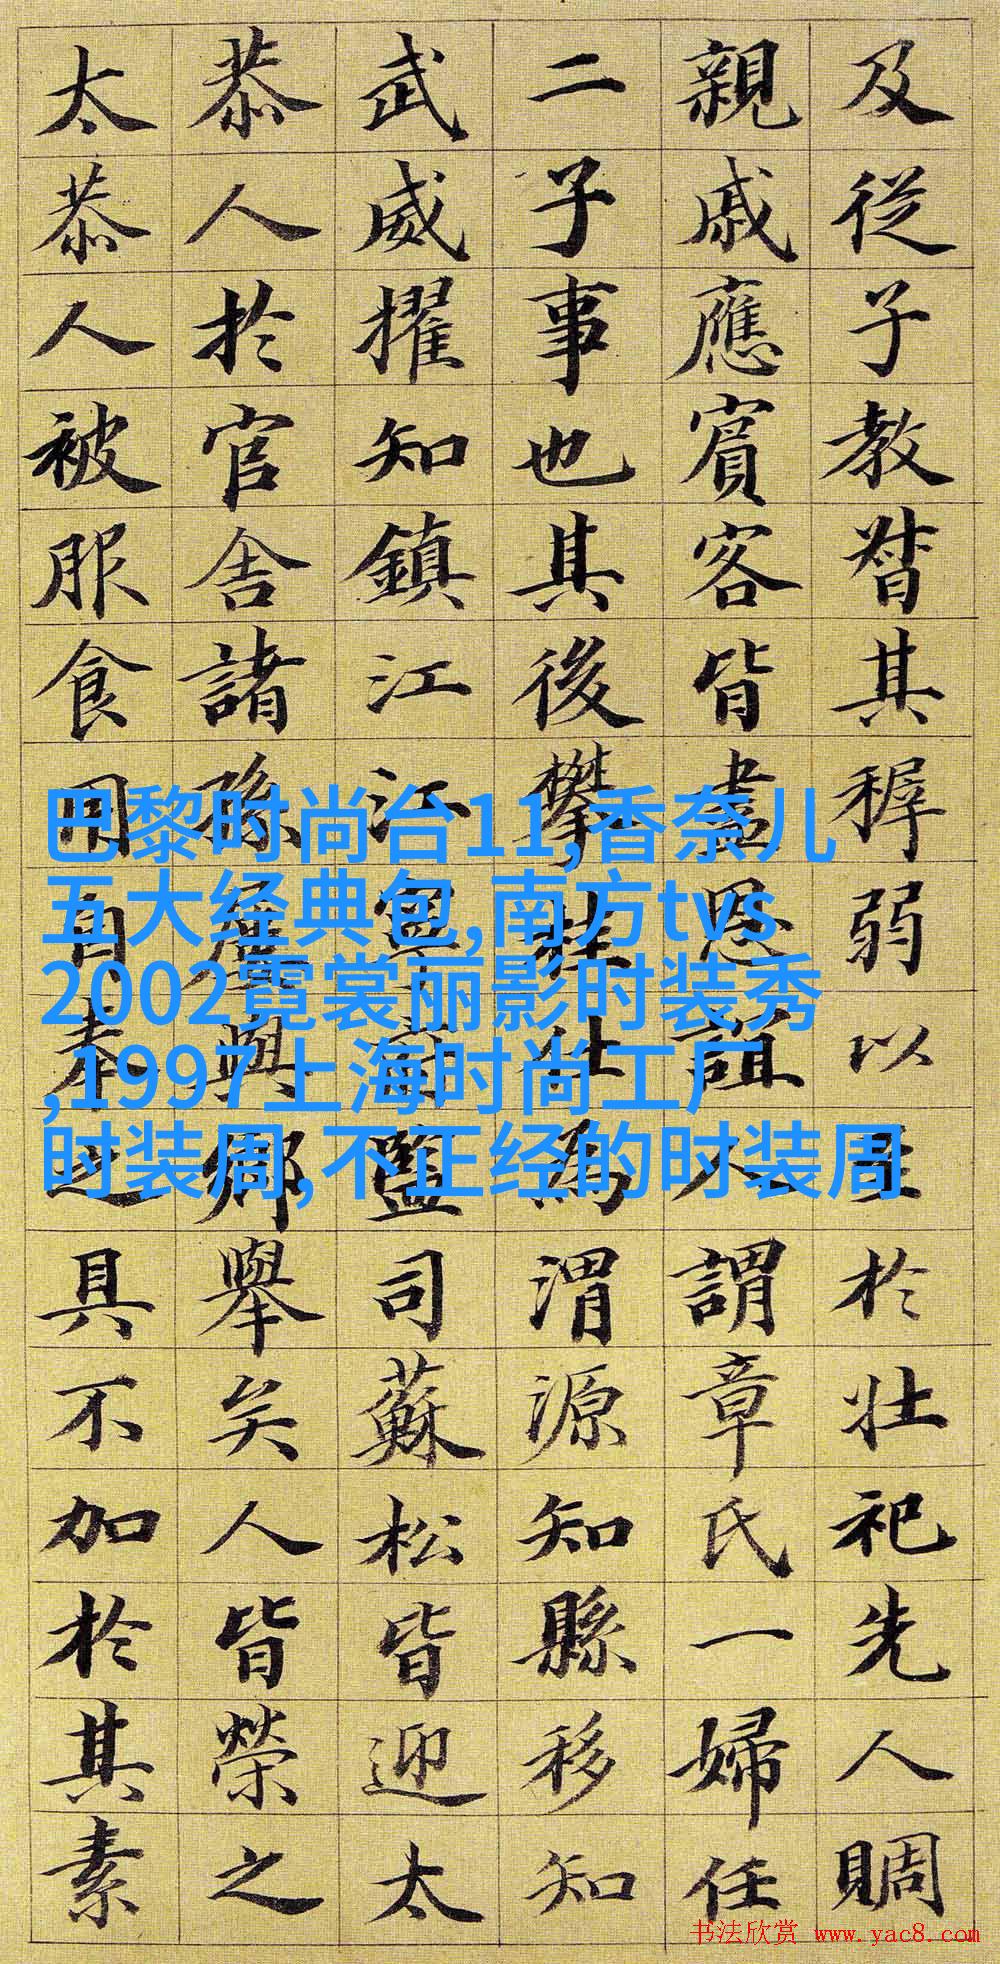 及從子教督其稺弱以至於壯祀先人賙
親戚應賓客皆盡恩誼人謂章氏一婦任
二子事也其後攀桂仕為渭源知縣移知
武威擢知鎮江江寧監司蘇松皆迎太
恭人於官舍諸孫屢與鄉舉矣人皆榮之
太恭人被服食用自奉之具不加於其素
巴黎时尚台11,香奈儿
五大经典包,南方tvs
2002霓裳丽影时装秀
,1997上海时尚工厂
时装周,不正经的时装周
书法欣赏 www.yac8.com